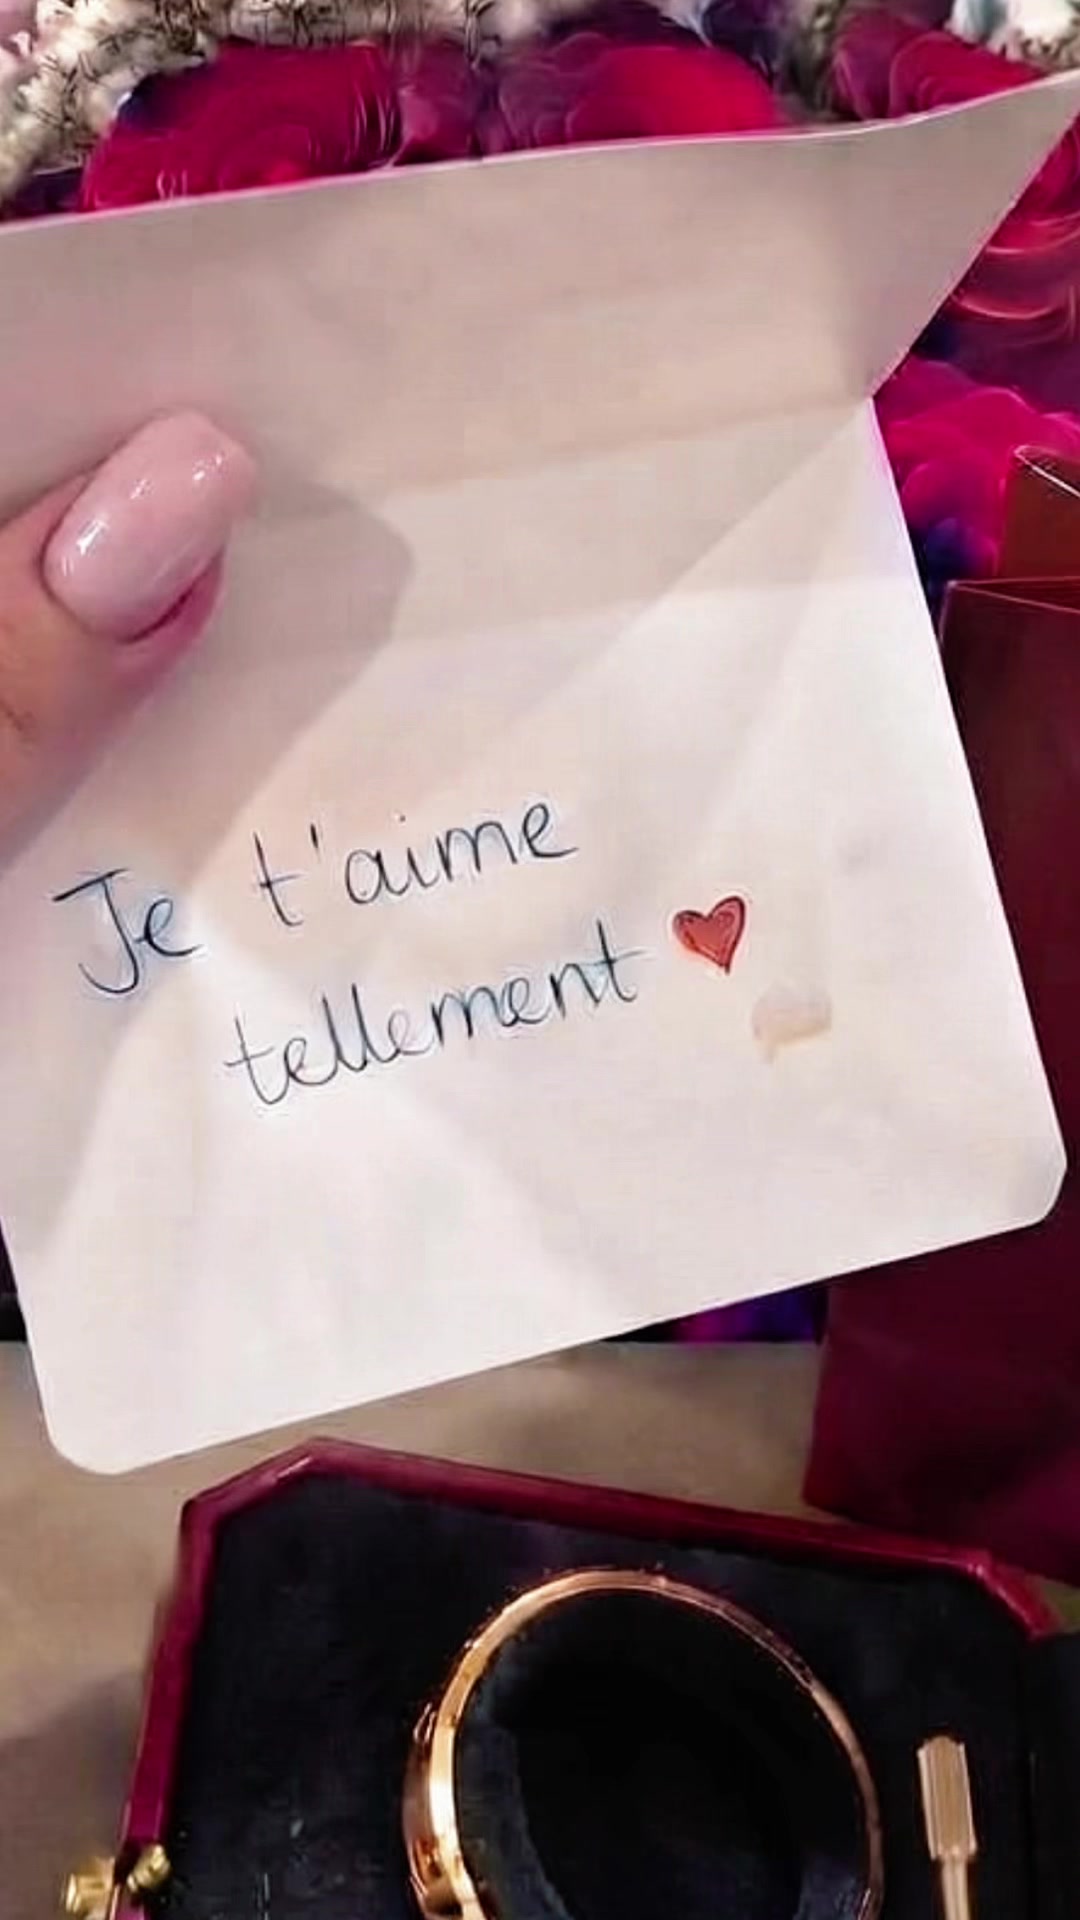 Je t'aime
tellement ❤